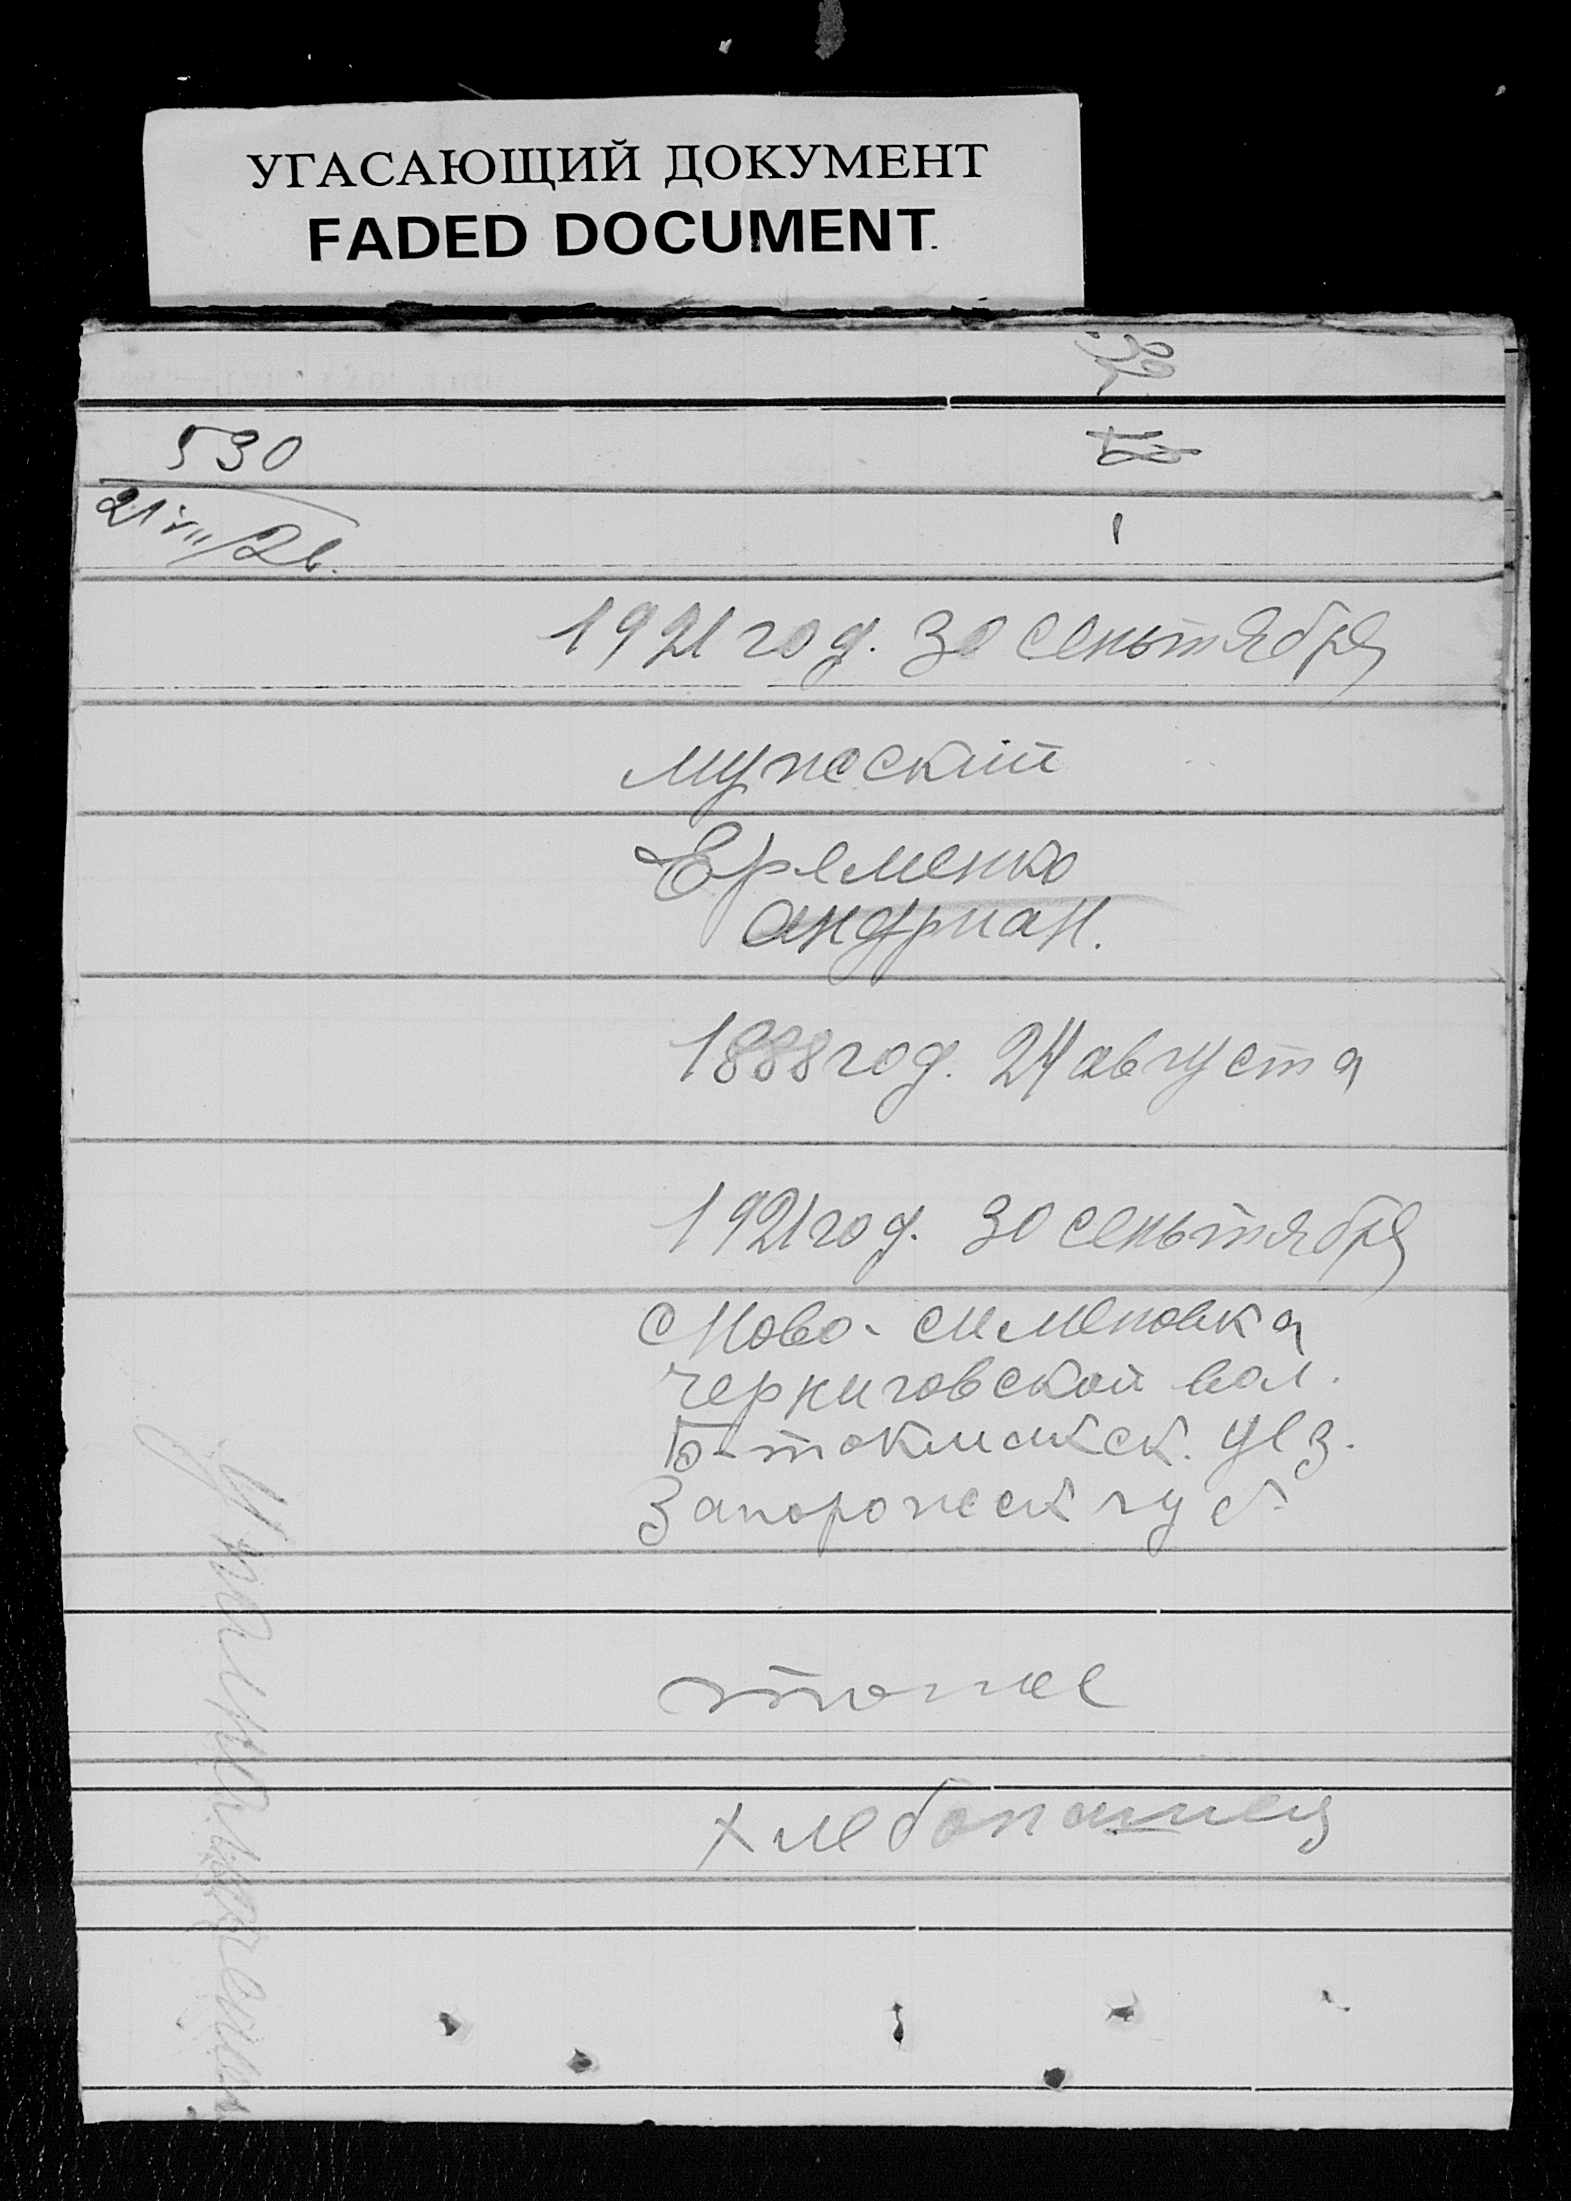 УГАСАЮЩИЙ ДОКУМЕНТ
FADED DOCUMENT
32
530
21 VII/26.
1
1921 год. 30 сеньтября
мужский
Еременко
Андриан.
1888 год. 24 августа
1921 год. 30 сеньтября
с Ново-симеповка
черниговской вол.
Б-токмакск. уез.
Запорожск губ.
тоже
хлебопашец